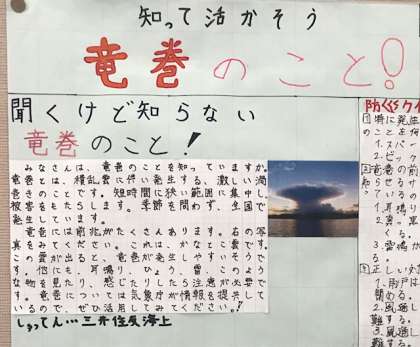 知って活かそう
竜巻のこと!
聞くけど知らない
竜巻のこと!
みなさんは、竜巻のことを知っていますか。
竜巻とは、積乱雲に伴い発生する、激しい渦
巻きのことです。短時間に狭い範囲に集中し、
被害をもたらします。季節を問わず、全国で
発生しています。
竜巻には前兆がたくさんあります。右の写
真をみてください。これは、かなとこ雲です。
この雲が出ると、竜巻が発生しやすいそうで
す。他にも、耳鳴り、ひょう、雷、このよう
な物を見たり、感じたりしたら注意が必要で
す。竜巻については気象庁が情報を提供して
いるので、ぜひ活用してみてください。
しゅってん…三井住友海上
防災クイ
①特に発生
のことを何
1.スパー
2.ビッ
②竜巻の前
知らせるで
ているのう
1.耳鳴り
2.真っ黒
くる。
3.雷鳴が
る。
③正しい
1.雨戸は
閉める。
2.風通し
難する。
3.風通し
難する。